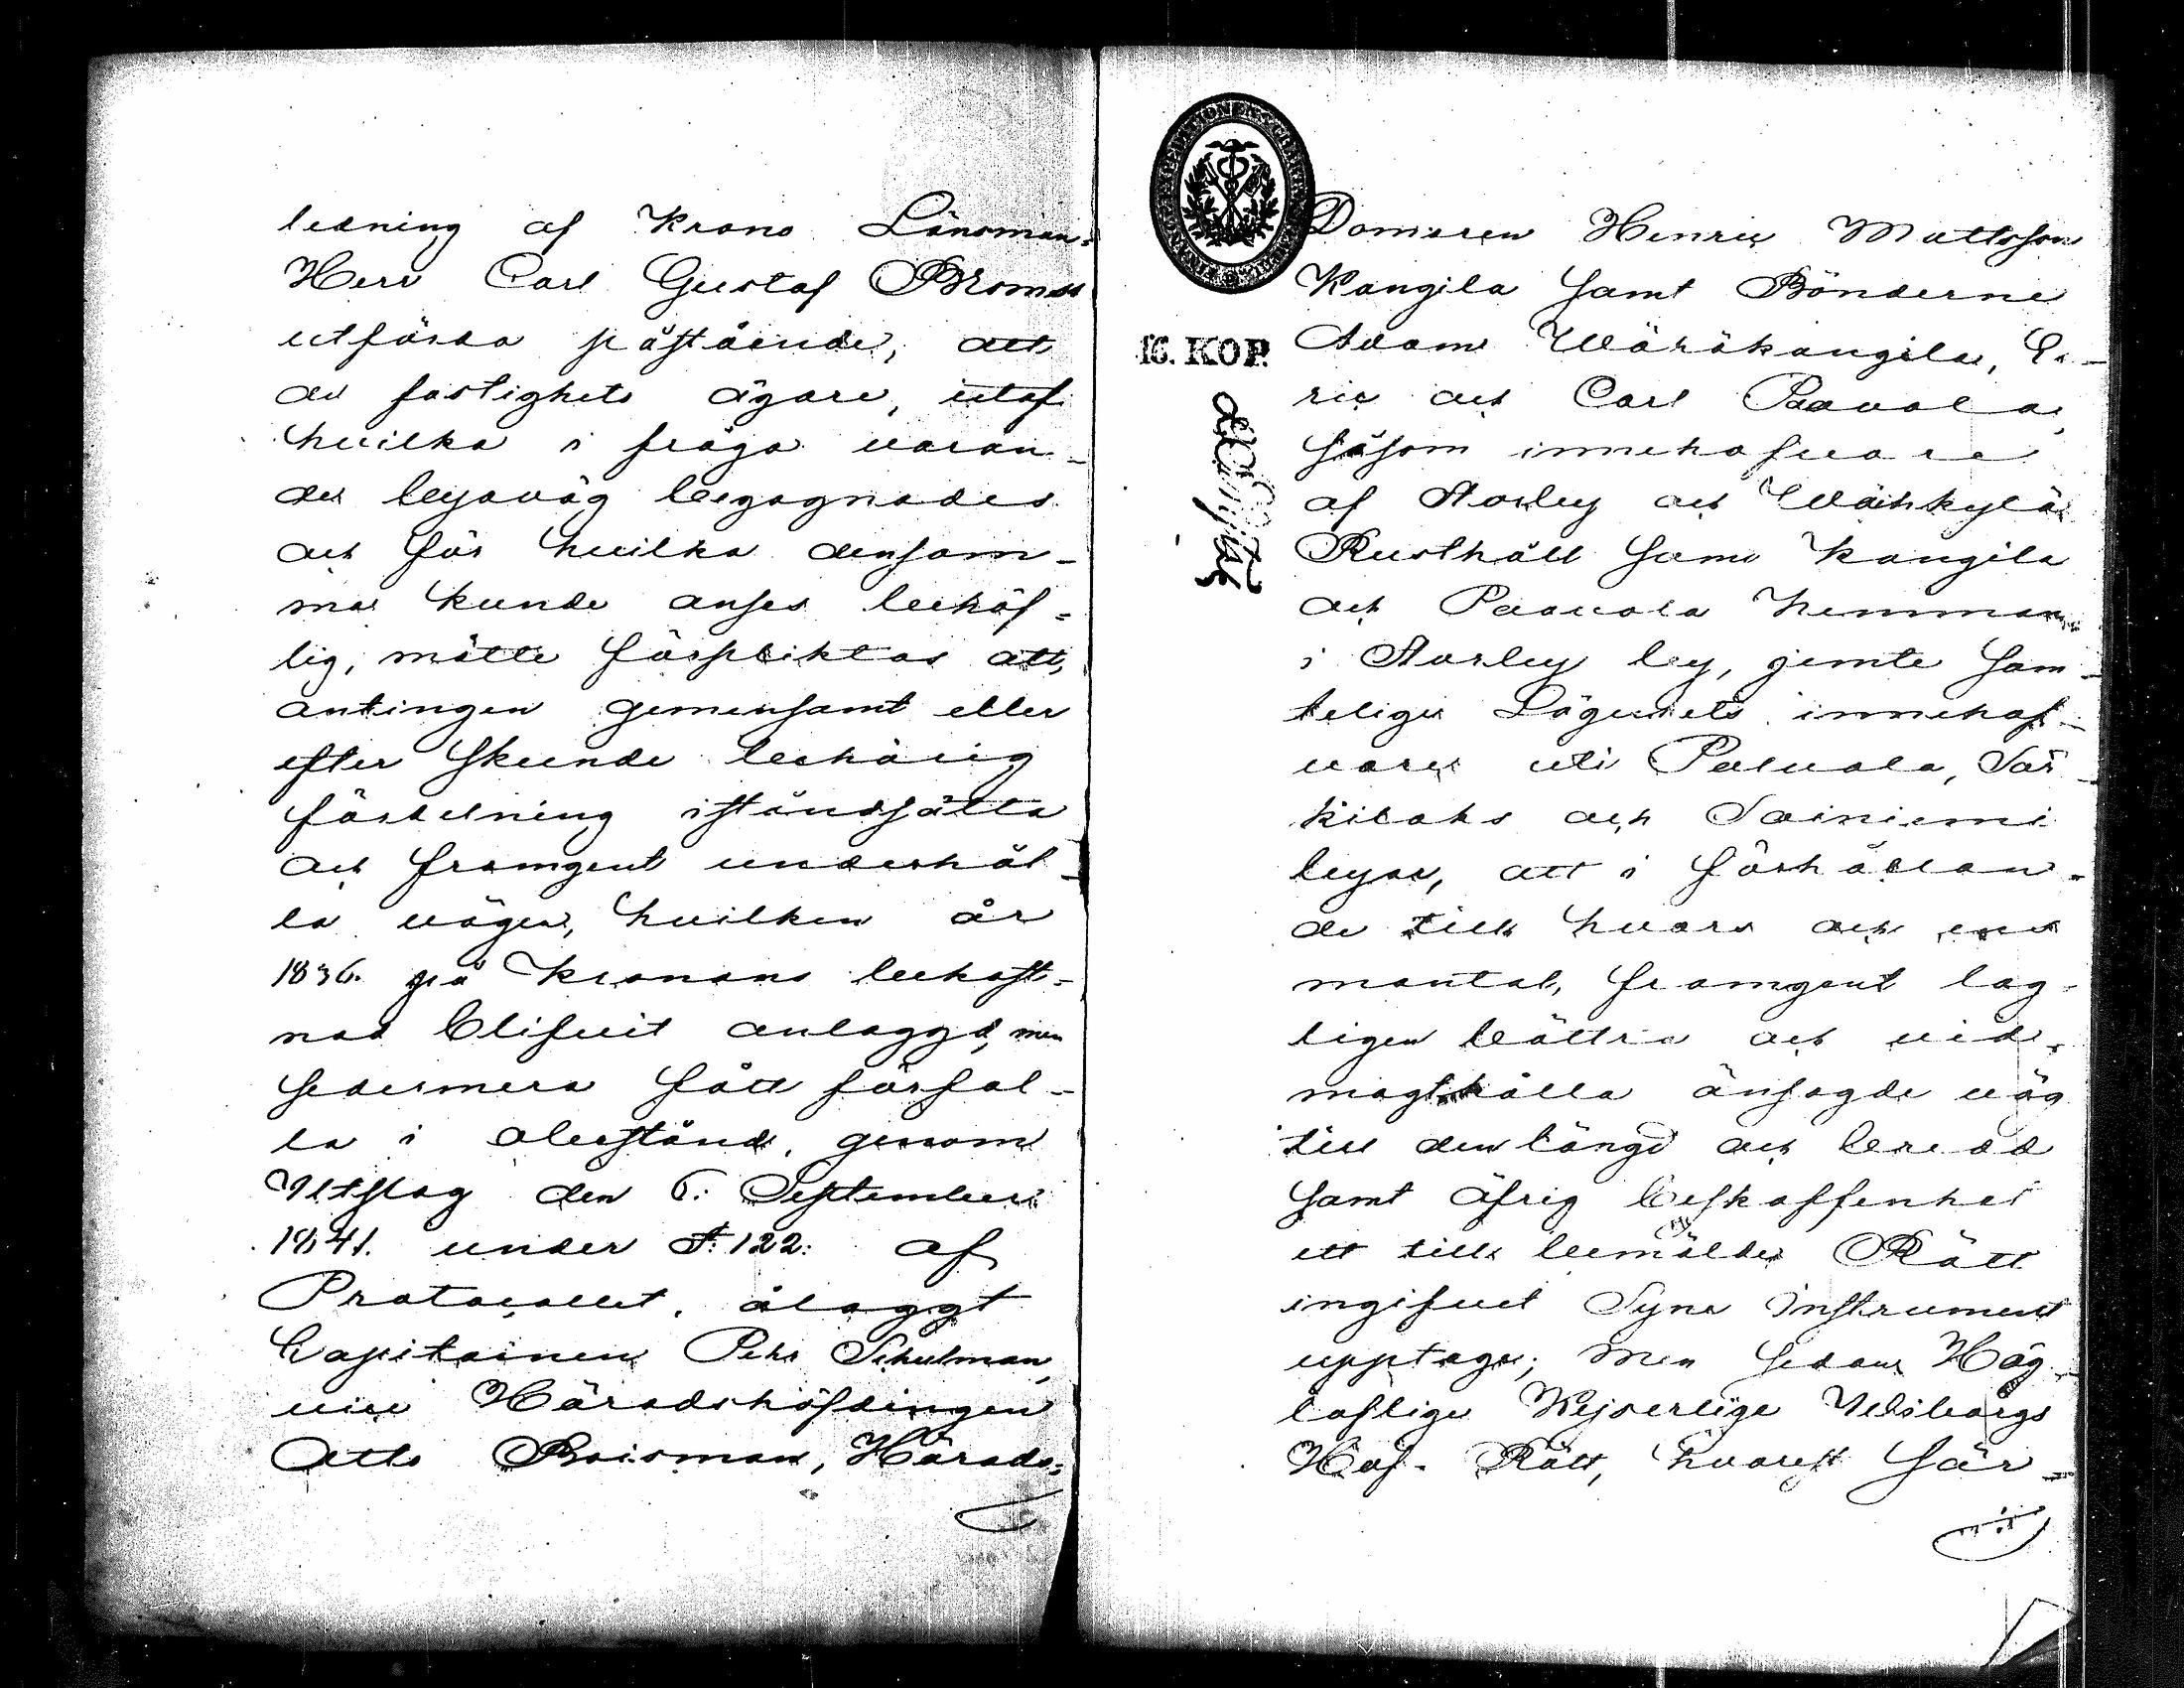 ledning af Krono Länsman-
Herr Carl Gustaf Bromss
utförda påstående, att
de fastighets ägare, utaf
hvilka i fråga varan-
de byaväg begagnades
och för hvilka densam-
ma kunde anses behöf-
lig, måtte förpliktas att,
antingen gemensamt eller
efter skeende behörig
fördelning iståndsätta
och framgent underhål-
la vägen, hvilken år
1836. på Kronans bekost-
nad blifvit anlaggd, men
sedermera fått förfal-
la i obestånd, genom
Utslag den 6. September
1841. under §. 122. af
Protocollet, ålaggt
Capitainen Pehr Schulman,
vice Häradshöfdingen
Otto Boisman, Härads-
FINANCE EXPEDITIONEN
16. KOP.
Domaren Henric Mattsson
Kangila samt Bönderne
Adam Wäräkangila, E-
ric och Carl Paavola,
såsom innehafvare
af Aorby och Wähkylä
Rusthåll samt Kangila
och Paavola hemman
i Aorby by, jemte sam-
telige Lägenhets innehaf-
vare uti Paluola, Sär-
kilaks och Sainiemi
byar, att i förhållan-
de till hvars och ens
mantal, framgent lag-
ligen bättra och vid-
magthålla änsagde väg
till den längd och bredd
samt öfrig beskaffenhet
ett till bemälde Rätt
ingifvet Syne Instrument
upptager; men sedan Hög-
loflige Kejserlige Wiborgs
Hof-Rätt, hvarest sär-